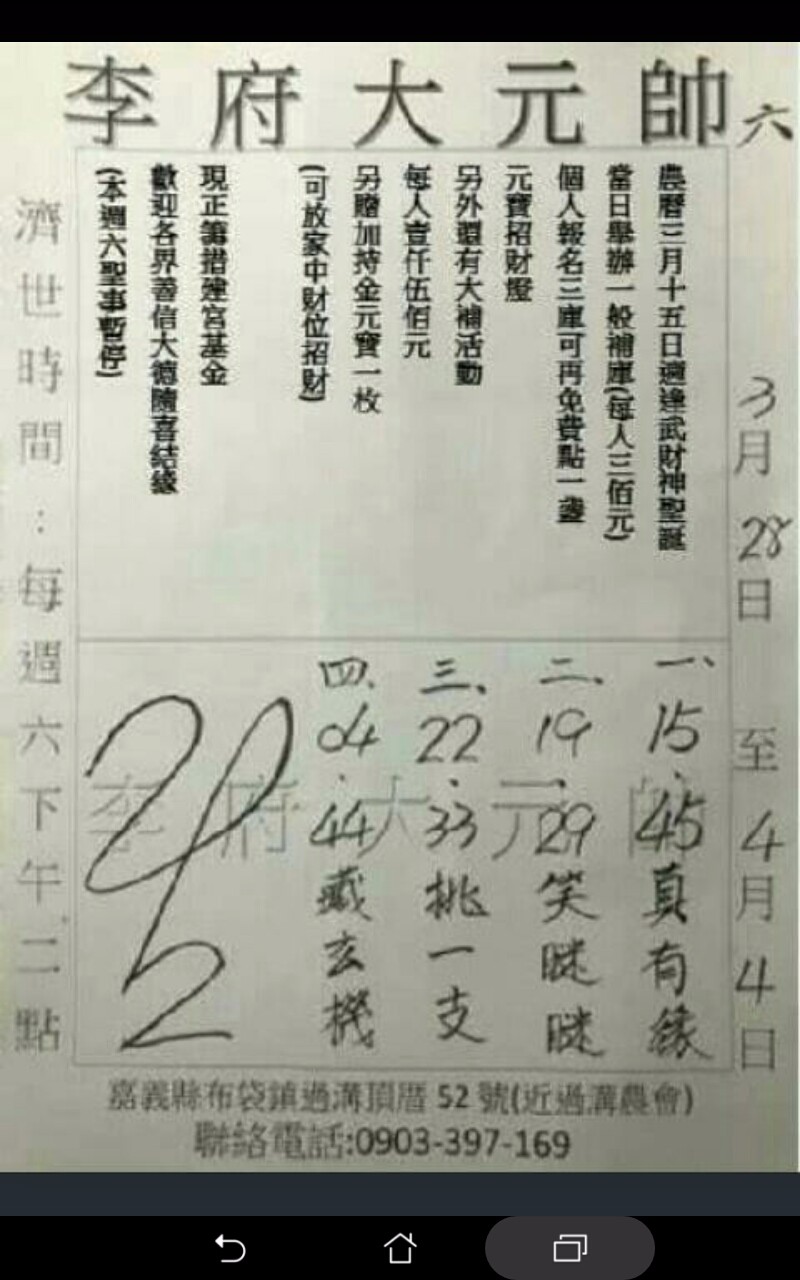 李府大元帥
六
3月28日至4月4日
農曆三月十五日適逢武財神聖誕
當日舉辦一般補庫(每人三佰元)
個人報名三庫可再免費點一盞
元寶招財燈
另外還有大補活動
每人壹仟伍佰元
另贈加持金元寶一枚
(可放家中財位招財)
現正籌措建宮基金
歡迎各界善信大德隨喜結緣
(本週六聖事暫停)
一、15.45真有緣
二、19.29笑瞇瞇
三、22.33挑一支
四、04.44藏玄機
李府大元帥
濟世時間：每週六下午二點
嘉義縣布袋鎮過溝頂厝52號(近過溝農會)
聯絡電話:0903-397-169